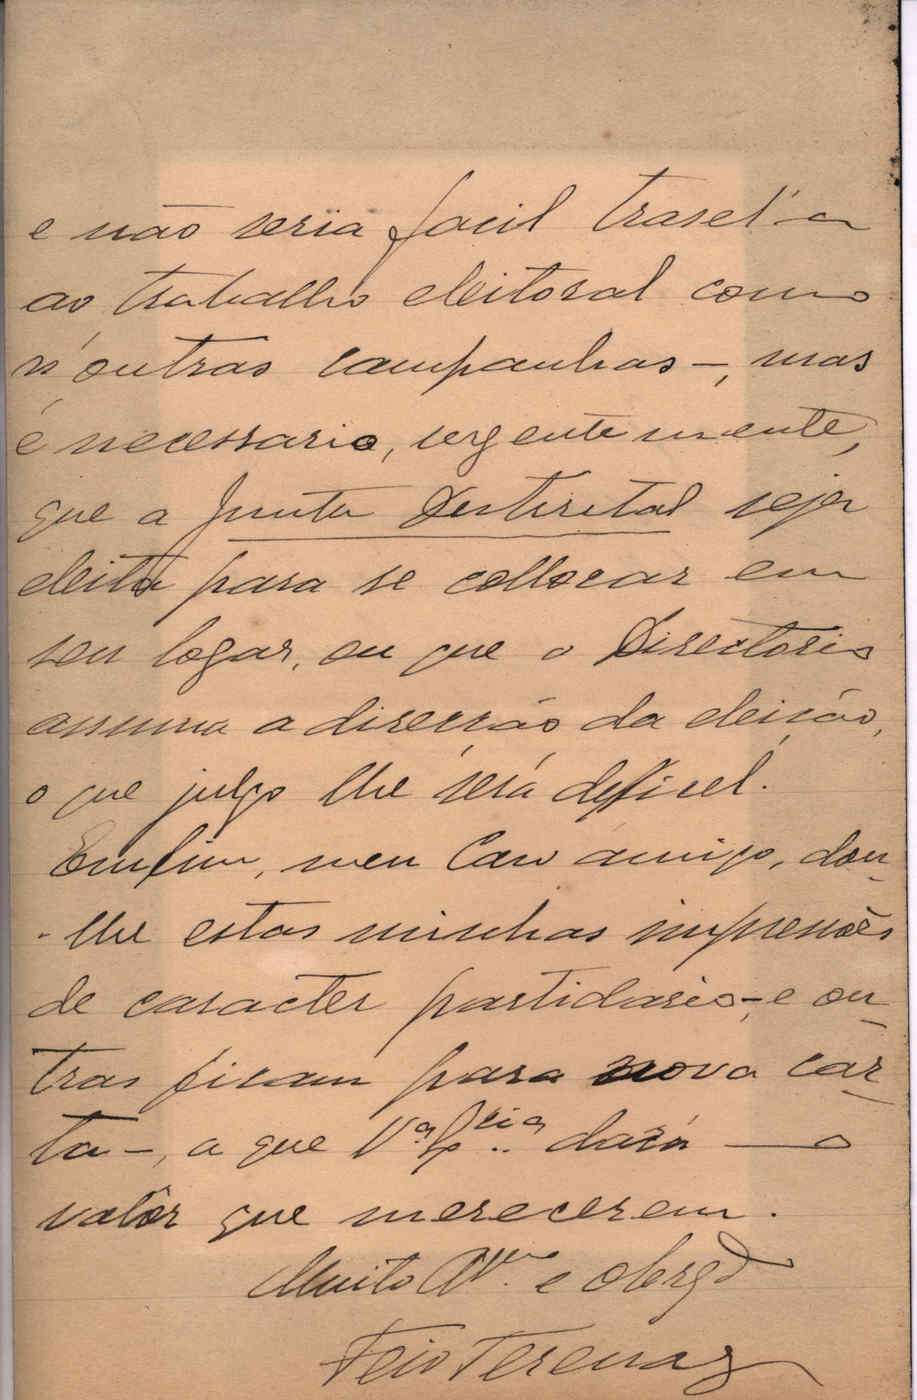 e não seria facil trasel'a
ao trabalho eleitoral como
n'outras campanhas -, mas
é necessario, urgentemente,
que a Junta Destirital seja
eleita para se collocar em
seu logar, ou que o Directorio
assuma a direcção da eleição,
o que julgo lhe será deficel.
Emfim, meu Caro amigo, dou-
-lhe estas minhas impressões
de caracter partidario -, e ou-
tras ficam para nova car-
ta -, a que V.ª Ex.cia dará — o
valôr que merecerem.
Muito Att.º e obrgd
Feio Terenas